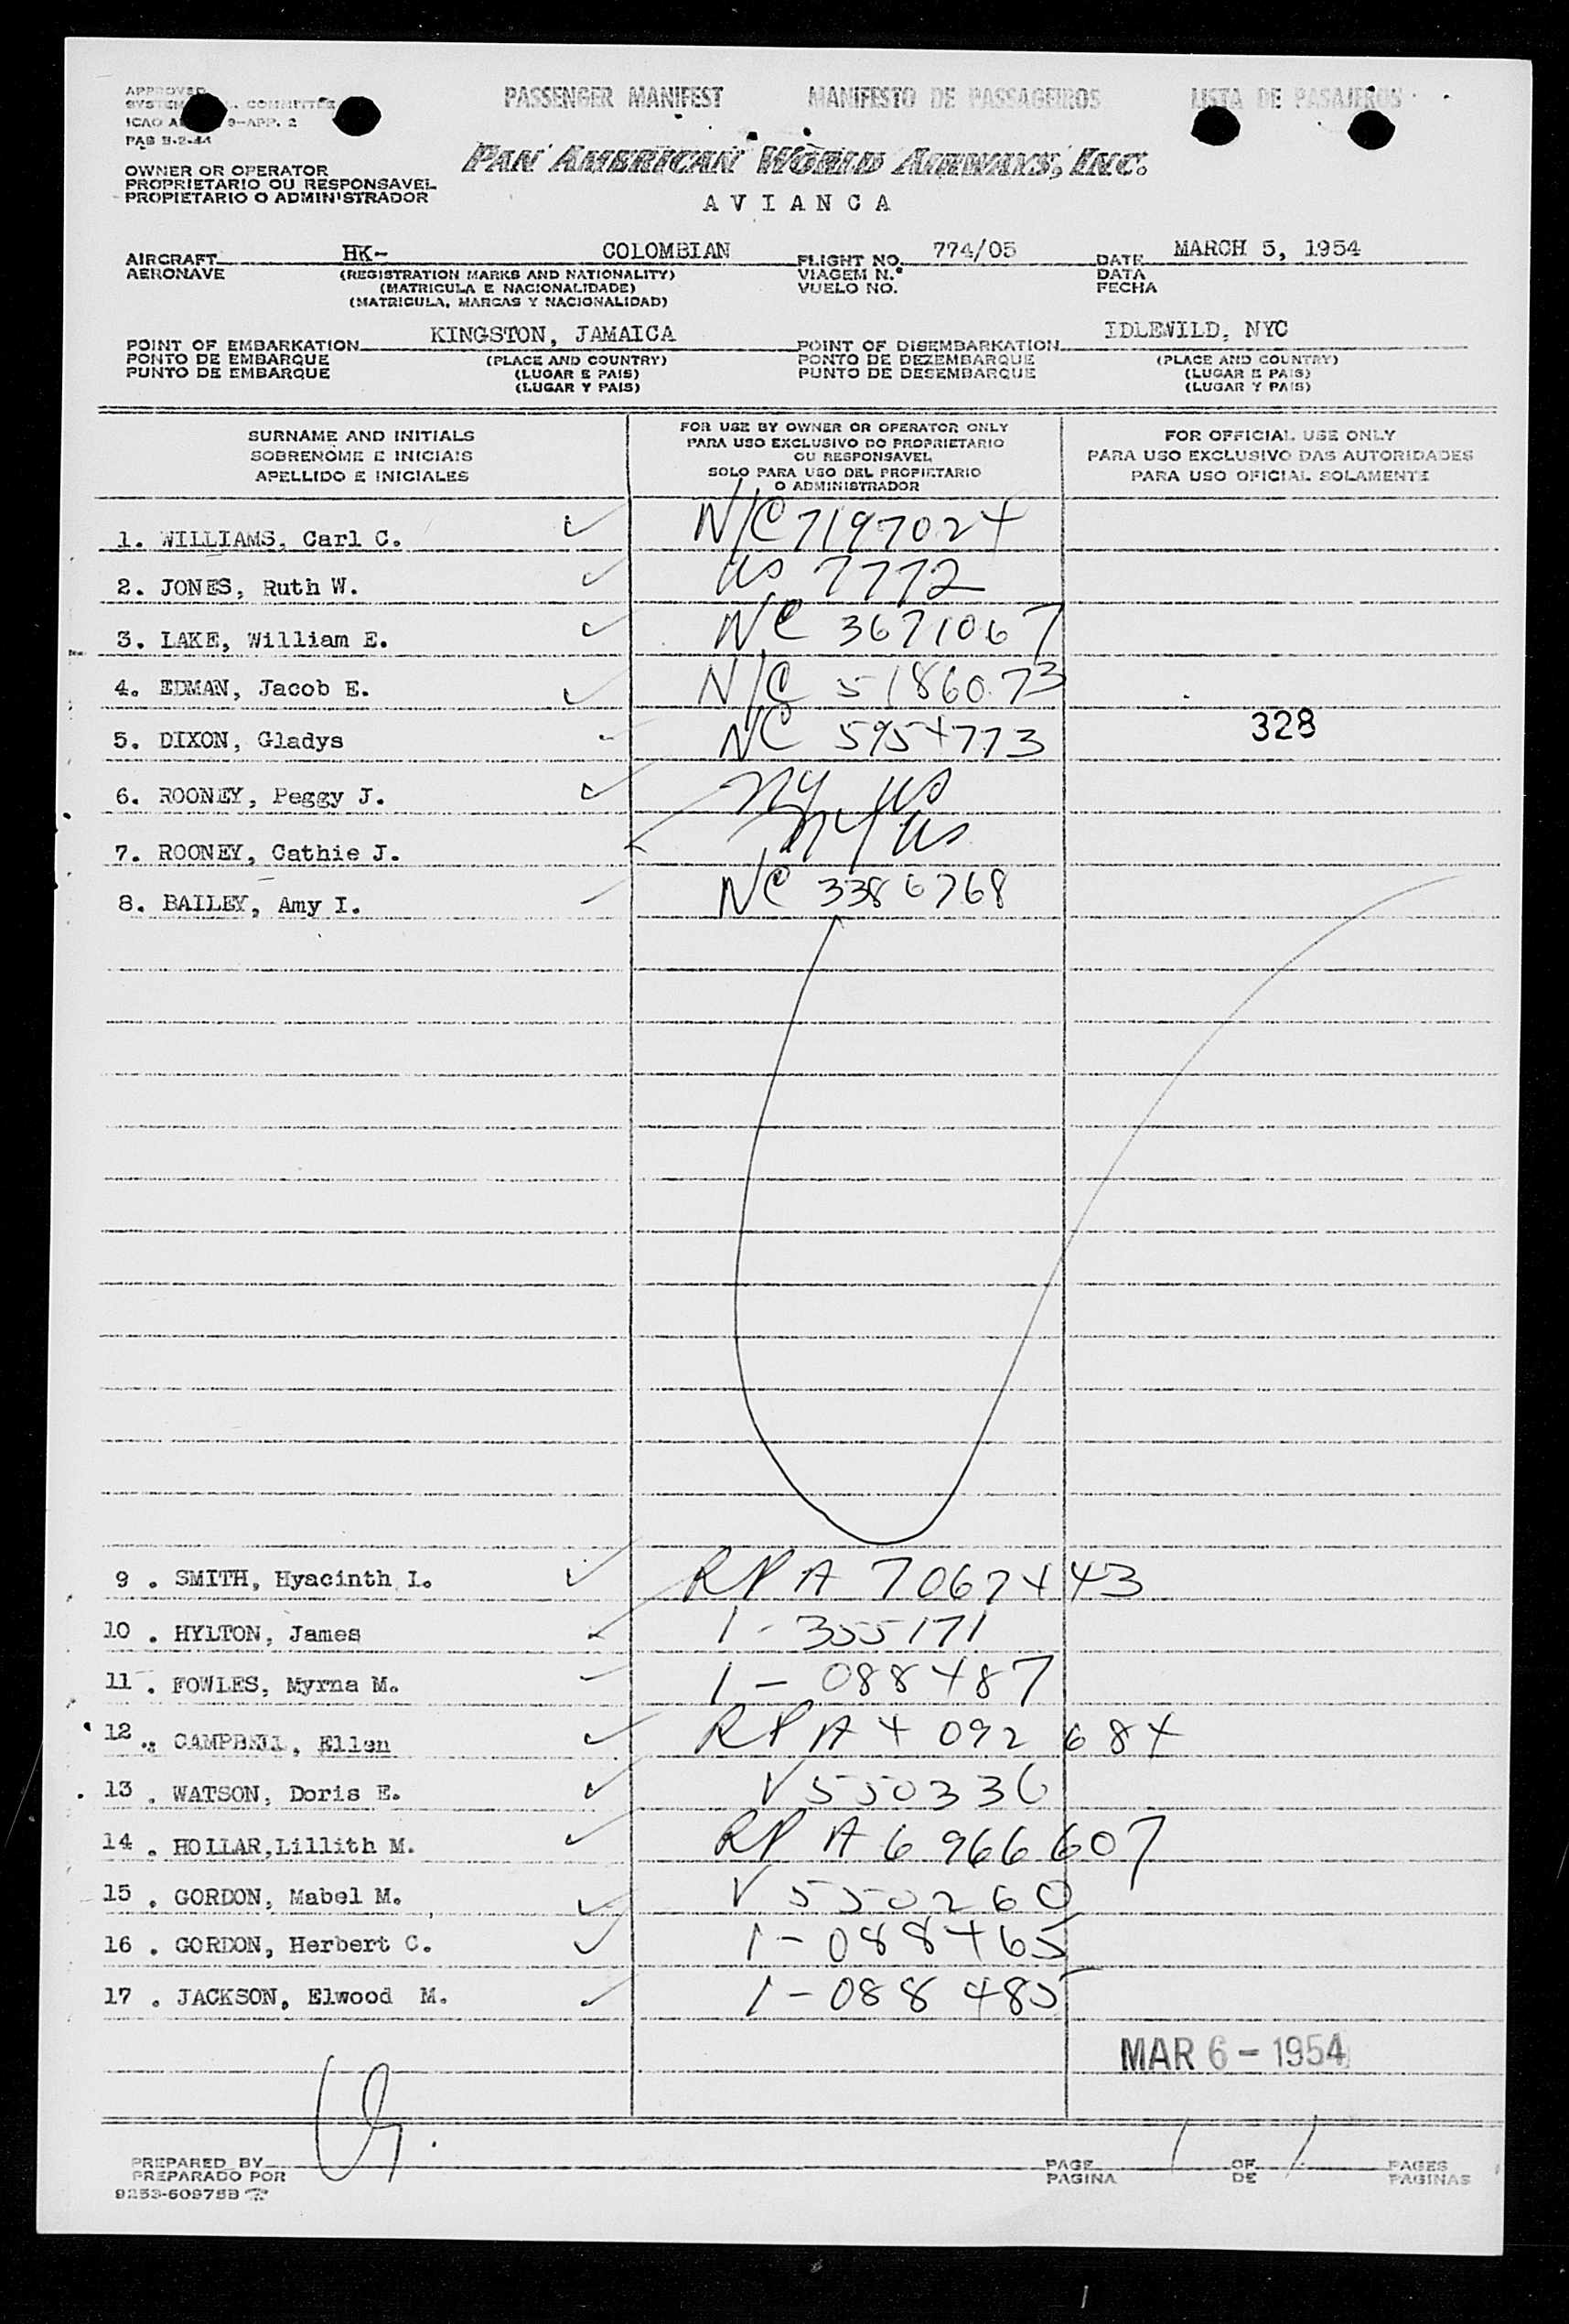 PASSENGER MANIFEST MANIFESTO DE PASSAGEIROS LISTA DE PASAJEROS
APPROVED
SYSTEM COMMITTEE
ICAO 9-APP. 2
PAN AMERICAN WORLD AIRWAYS, INC.
OWNER OR OPERATOR
PROPRIETARIO OU RESPONSAVEL
PROPIETARIO O ADMINISTRADOR
AVIANCA
AIRCRAFT HK- COLOMBIAN FLIGHT NO. 774/05 DATE MARCH 5, 1954
AERONAVE (REGISTRATION MARKS AND NATIONALITY) VIAGEM N.º DATA
(MATRICULA E NACIONALIDADE) VUELO NO. FECHA
(MATRICULA, MARCAS Y NACIONALIDAD)
POINT OF EMBARKATION KINGSTON, JAMAICA POINT OF DISEMBARKATION IDLEWILD, NYC
PONTO DE EMBARQUE (PLACE AND COUNTRY) PONTO DE DEZEMBARQUE (PLACE AND COUNTRY)
PUNTO DE EMBARQUE (LUGAR E PAIS) PUNTO DE DESEMBARQUE (LUGAR E PAIS)
(LUGAR Y PAIS) (LUGAR Y PAIS)
SURNAME AND INITIALS
SOBRENOME E INICIAIS
APELLIDO E INICIALES
FOR USE BY OWNER OR OPERATOR ONLY
PARA USO EXCLUSIVO DO PROPRIETARIO
OU RESPONSAVEL
SOLO PARA USO DEL PROPIETARIO
O ADMINISTRADOR
FOR OFFICIAL USE ONLY
PARA USO EXCLUSIVO DAS AUTORIDADES
PARA USO OFICIAL SOLAMENTE
1. WILLIAMS, Carl C. N/C 7197024
2. JONES, Ruth W. US 7772
3. LAKE, William E. NC 3671067
4. EDMAN, Jacob E. N/C 5186073
5. DIXON, Gladys NC 5954773 328
6. ROONEY, Peggy J. NY US
7. ROONEY, Cathie J. NY US
8. BAILEY, Amy I. NC 3386768
9 . SMITH, Hyacinth I. RP A 7067443
10 . HYLTON, James 1-355171
11 . FOWLES, Myrna M. 1-088487
12 . CAMPBELL, Ellen RP A4 092 684
13 . WATSON, Doris E. V 550336
14 . HOLLAR,Lillith M. RP A 6 966 607
15 . GORDON, Mabel M. V 550260
16 . GORDON, Herbert C. 1-088465
17 . JACKSON, Elwood M. 1-088 485
MAR 6 - 1954
PREPARED BY PAGE 1 OF 1 PAGES
PREPARADO POR PAGINA DE PAGINAS
9253-60975B